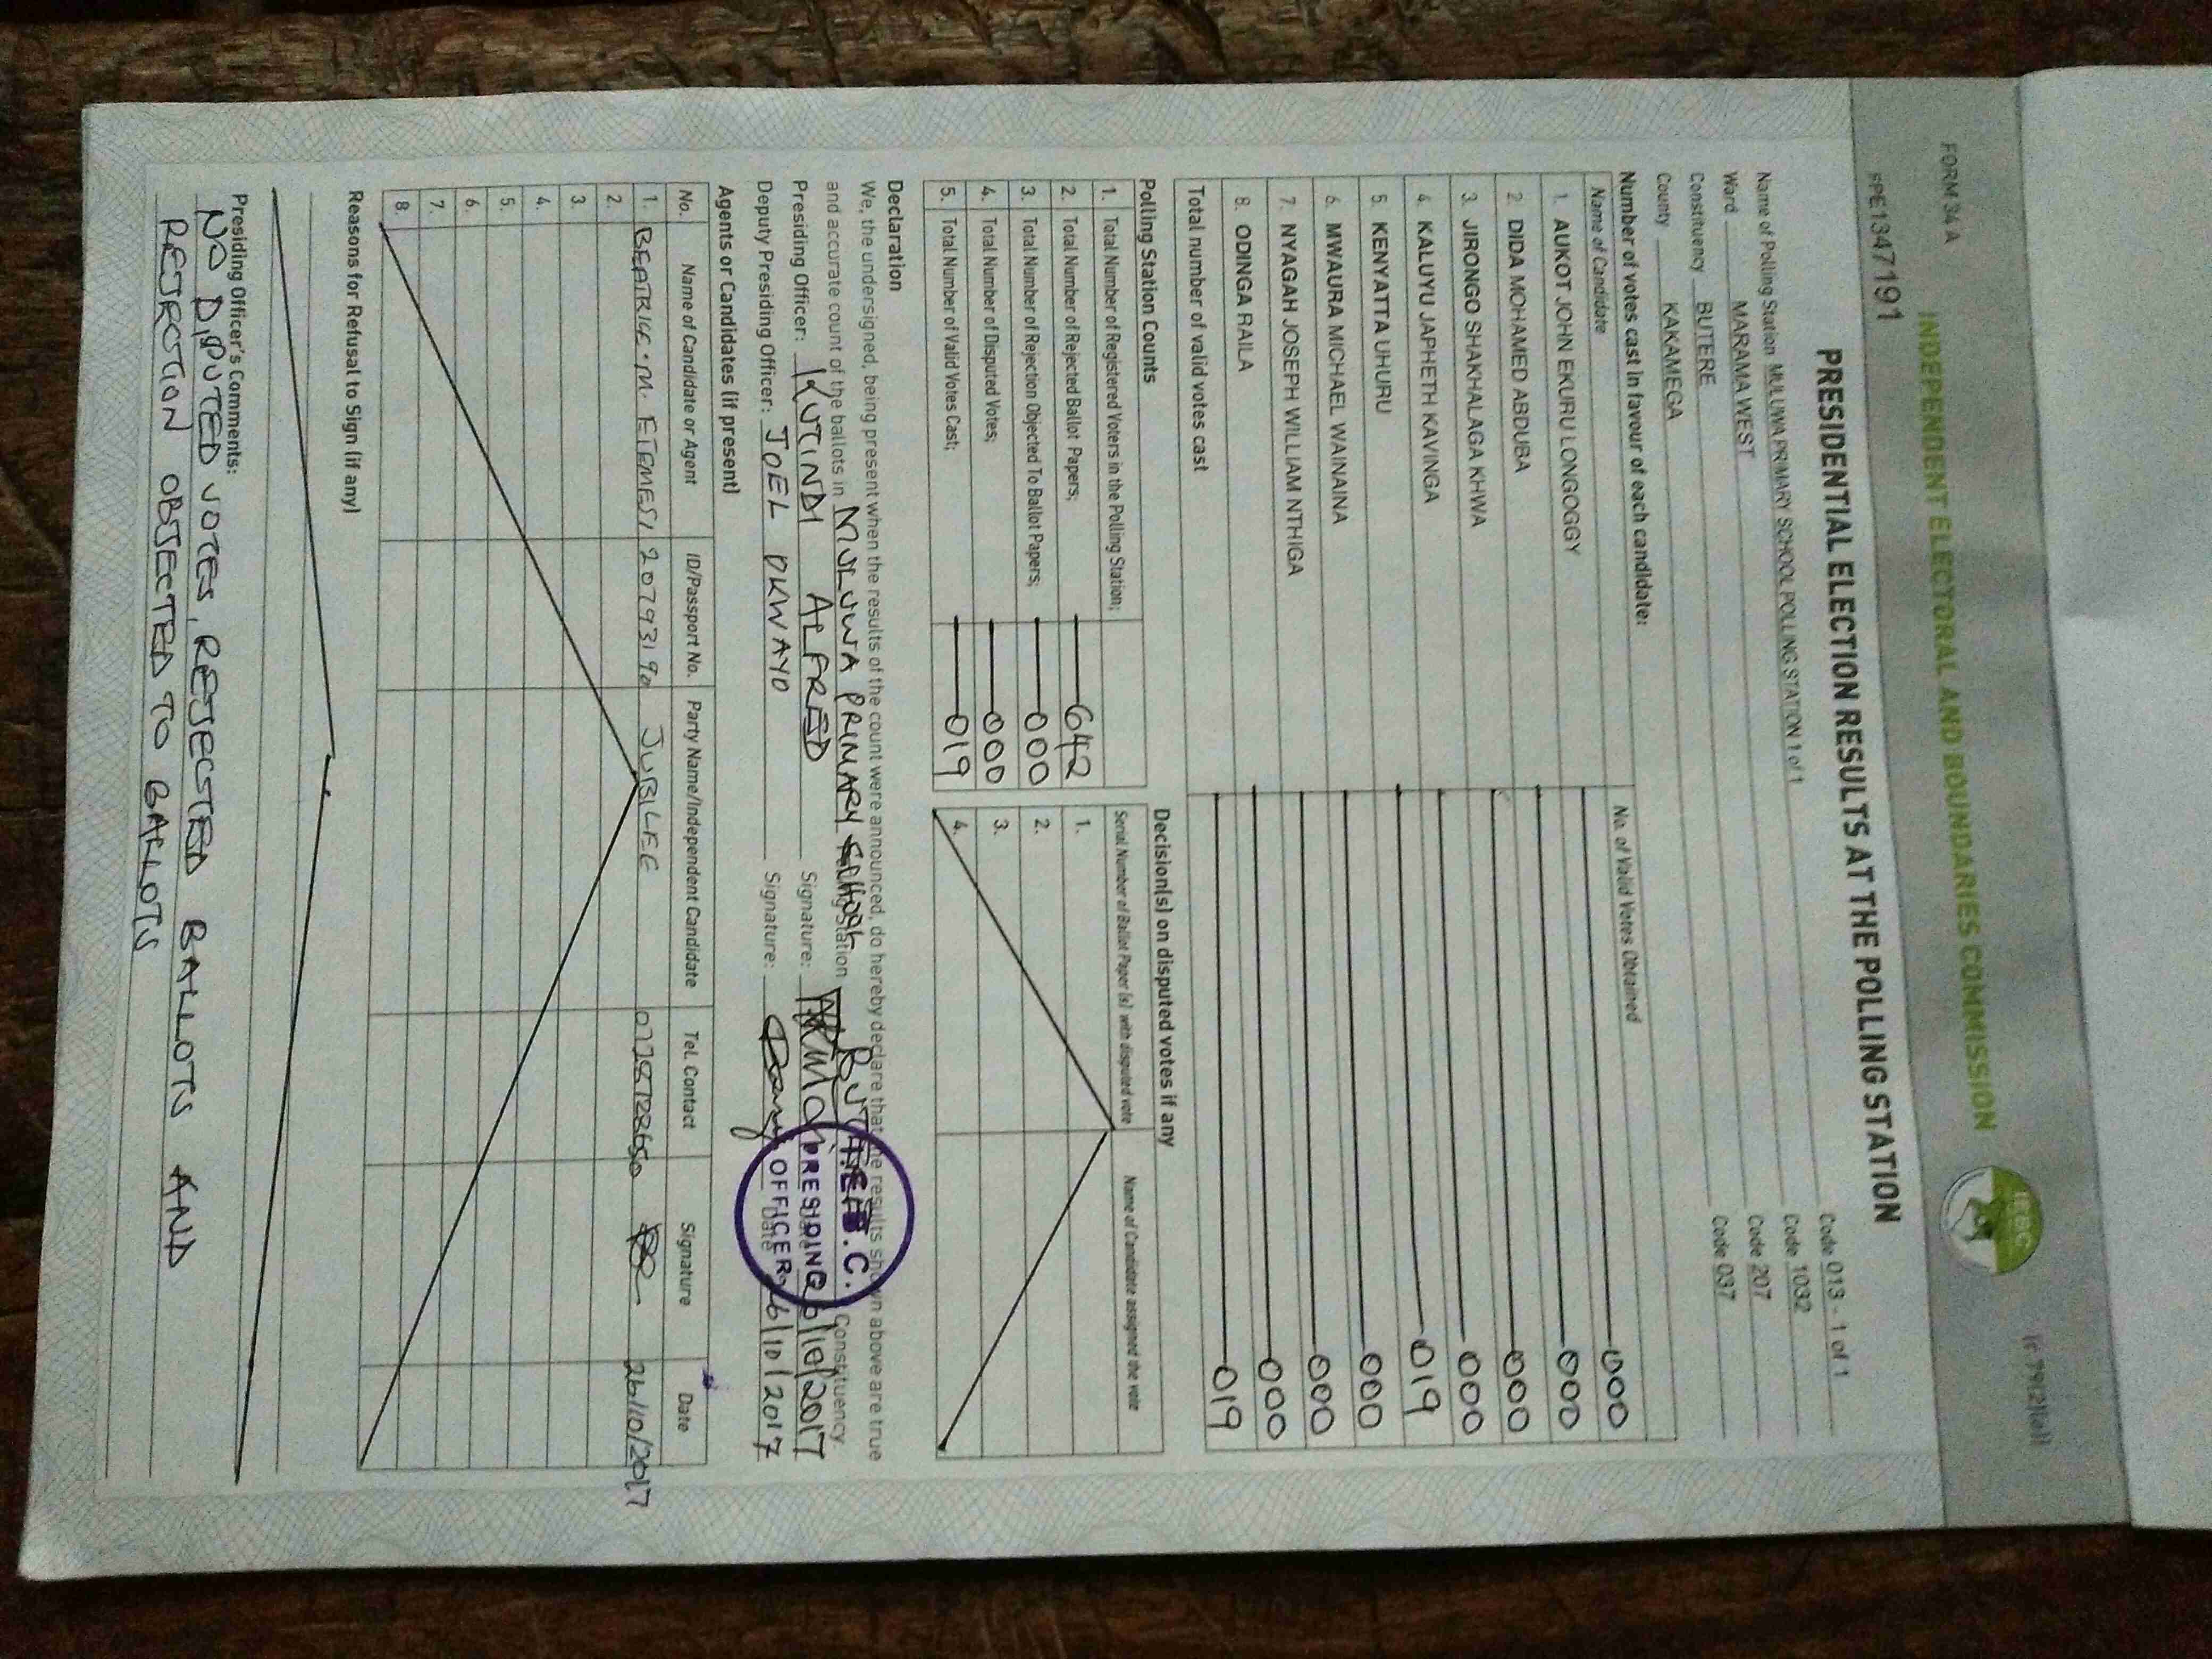 FORM 34 A
INDEPENDENT ELECTORAL AND BOUNDARIES COMMISSION
IEBC
SPE1347191
PRESIDENTIAL ELECTION RESULTS AT THE POLLING STATION
Name of Polling Station MULUWA PRIMARY SCHOOL POLLING STATION 1 of 1 Code 013 - 1 of 1
Ward MARAMA WEST Code 1032
Constituency BUTERE Code 207
County KAKAMEGA Code 037
Number of votes cast in favour of each candidate:
Name of Candidate No. of Valid Votes Obtained
1. AUKOT JOHN EKURU LONGOGGY 000
2. DIDA MOHAMED ABDUBA 000
3. JIRONGO SHAKHALAGA KHWA 000
4. KALUYU JAPHETH KAVINGA 000
5. KENYATTA UHURU 019
6. MWAURA MICHAEL WAINAINA 000
7. NYAGAH JOSEPH WILLIAM NTHIGA 000
8. ODINGA RAILA 000
Total number of valid votes cast 019
Polling Station Counts
1. Total Number of Registered Voters in the Polling Station;
2. Total Number of Rejected Ballot Papers; 642
3. Total Number of Rejection Objected To Ballot Papers; 000
4. Total Number of Disputed Votes; 000
5. Total Number of Valid Votes Cast; 019
Decision(s) on disputed votes if any
Serial Number of Ballot Paper (s) with disputed vote Name of Candidate assigned the vote
1.
2.
3.
4.
Declaration
We, the undersigned, being present when the results of the count were announced, do hereby declare that the results shown above are true
and accurate count of the ballots in MULUWA PRIMARY SCHOOL Polling Station BUTERE Constituency.
Presiding Officer: KUTINDI ALFRED Signature: Date 26/10/2017
Deputy Presiding Officer: JOEL OKWAYO Signature: Date 26/10/2017
I.E.B.C.
PRESIDING
OFFICER
Agents or Candidates (if present)
No. Name of Candidate or Agent ID/Passport No. Party Name/Independent Candidate Tel. Contact Signature Date
1. BEATRICE. M. ETEMESI 20793190 JUBILEE 0728728650 26/10/2017
2.
3.
4.
5.
6.
7.
8.
Reasons for Refusal to Sign (if any)
Presiding Officer's Comments:
NO DISPUTED VOTES, REJECSTED BALLOTS AND
REJECTION OBJECTED TO BALLOTS